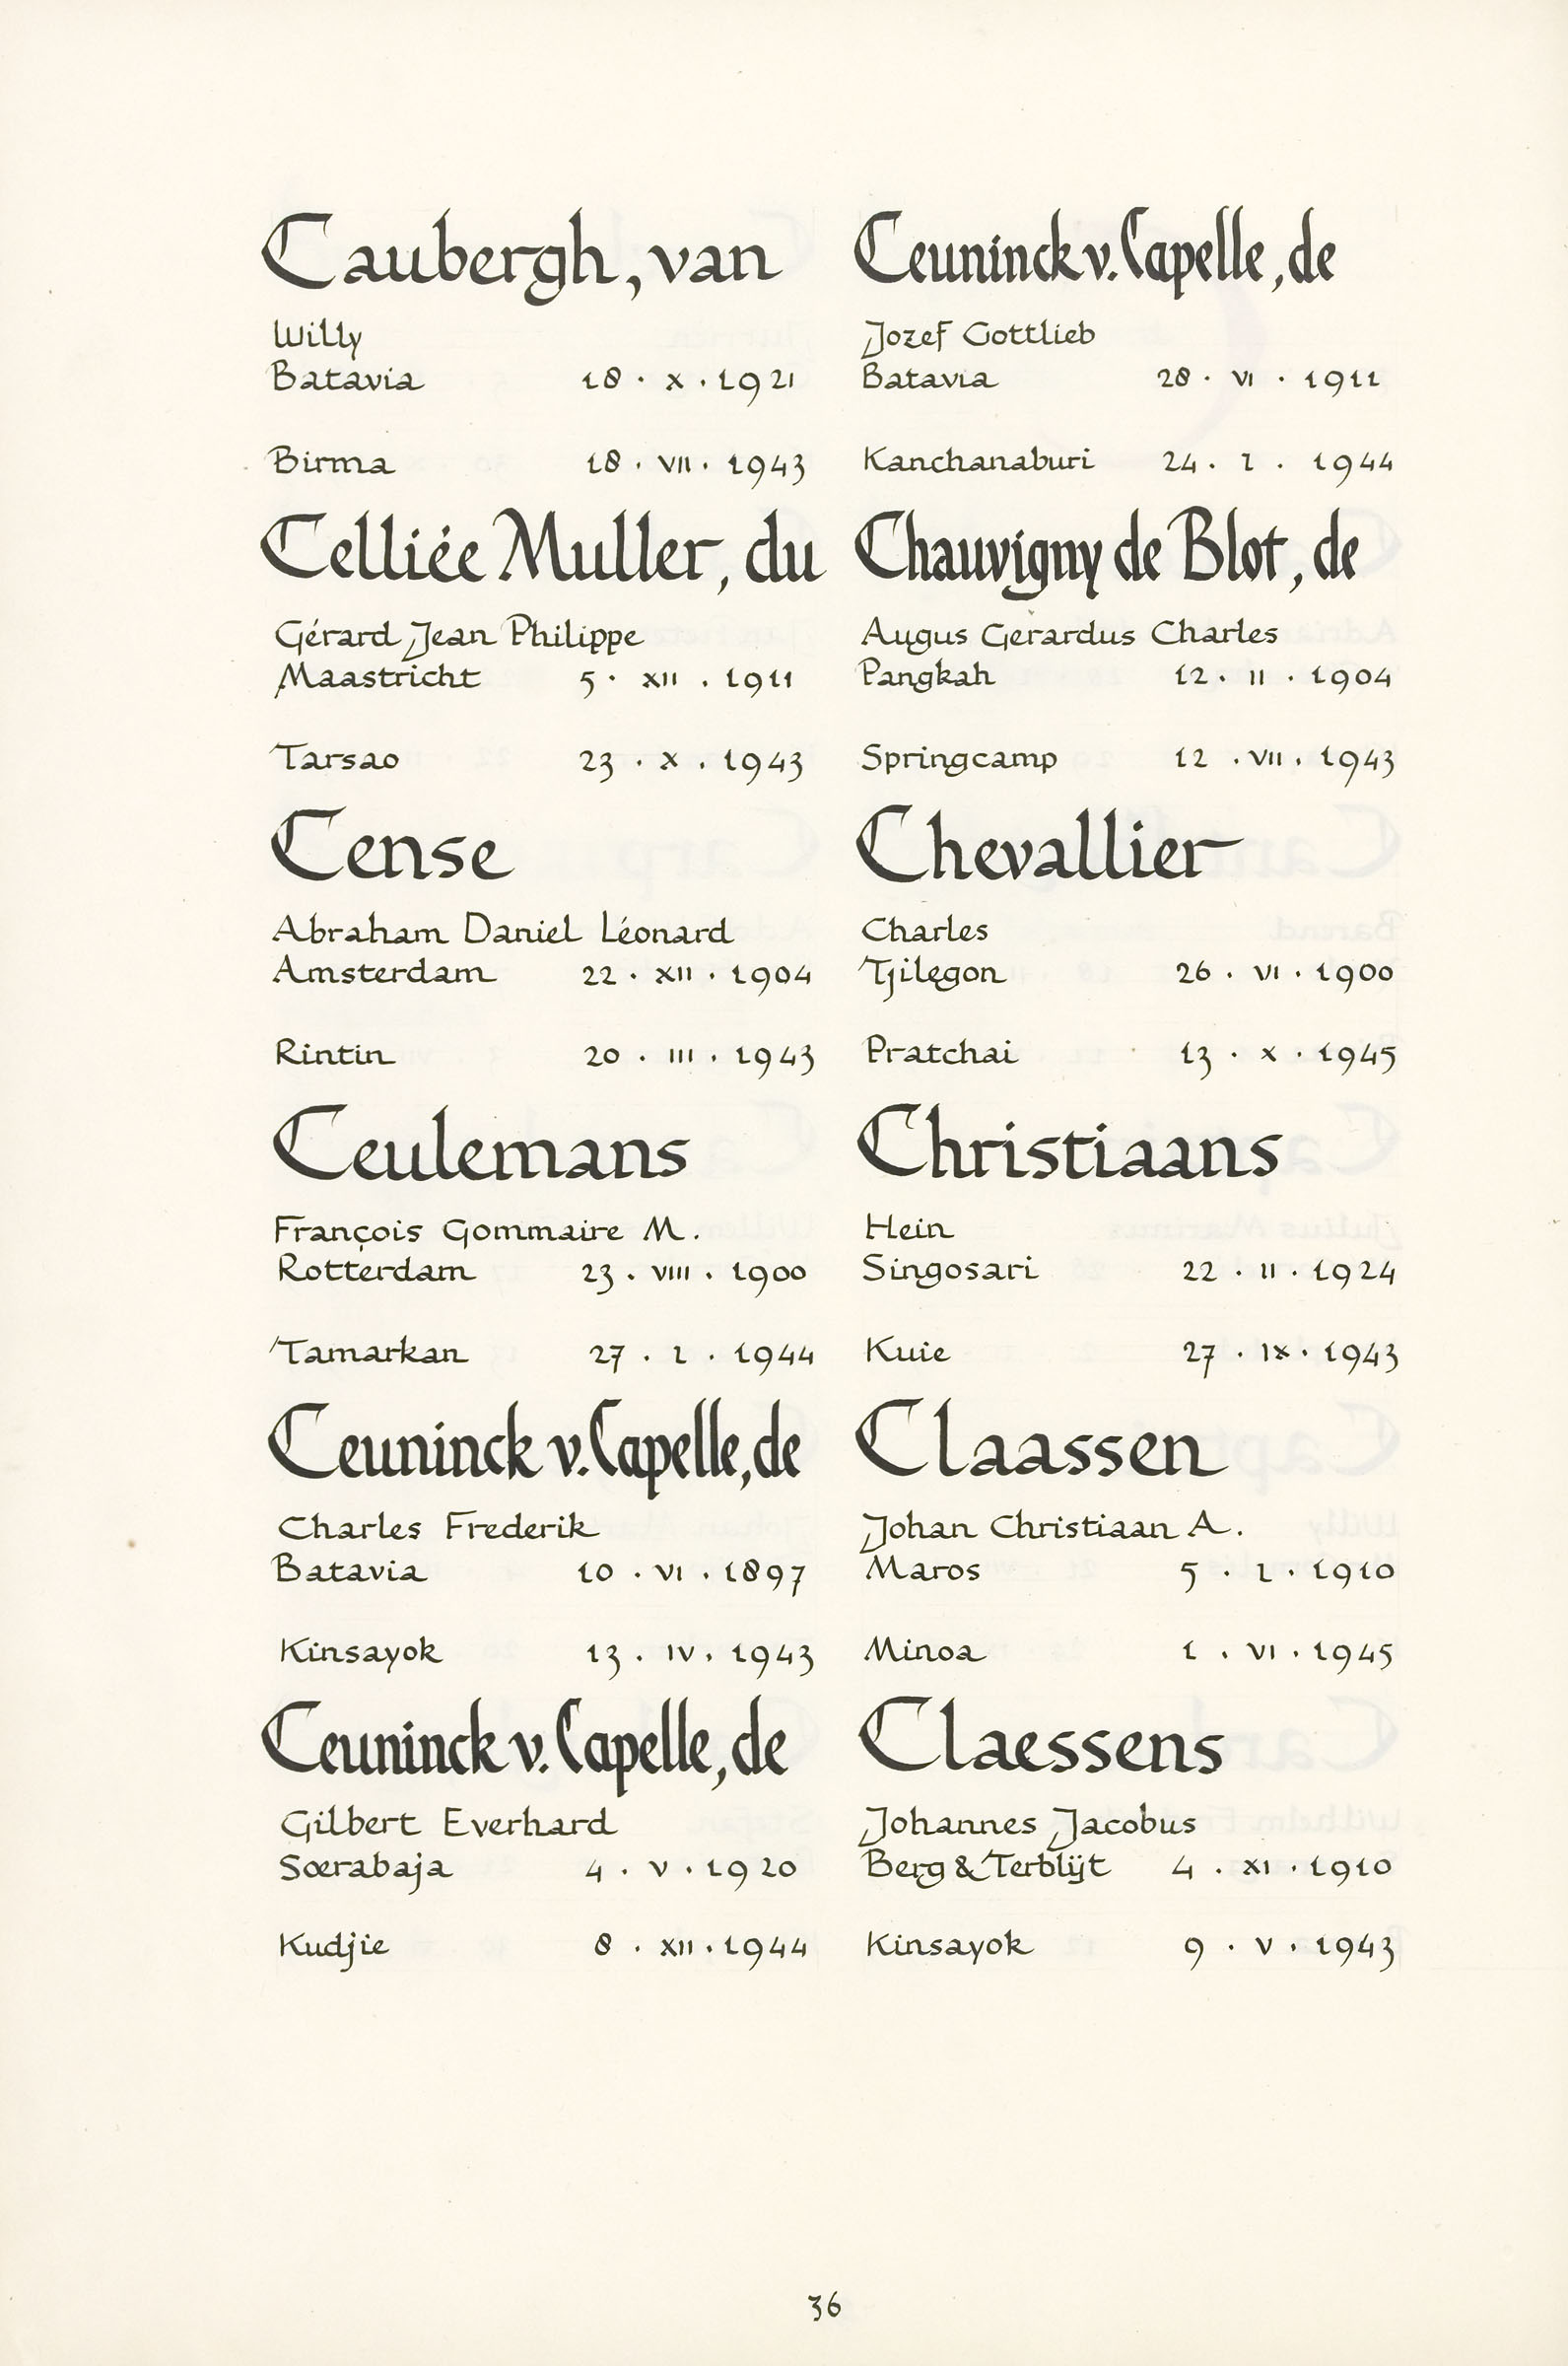 Caubergh, van
Willy
Batavia 18 · X · 1921
Birma 18 · VII · 1943
Celliée Muller, du
Gérard Jean Philippe
Maastricht 5 · XII · 1911
Tarsao 23 · X · 1943
Cense
Abraham Daniel Léonard
Amsterdam 22 · XII · 1904
Rintin 20 · III · 1943
Ceulemans
François Gommaire M.
Rotterdam 23 · VIII · 1900
Tamarkan 27 · I · 1944
Ceuninck v. Capelle, de
Charles Frederik
Batavia 10 · VI · 1897
Kinsayok 13 · IV · 1943
Ceuninck v. Capelle, de
Gilbert Everhard
Sœrabaja 4 · V · 1920
Kudjie 8 · XII · 1944
Ceuninck v. Capelle, de
Jozef Gottlieb
Batavia 28 · VI · 1911
Kanchanaburi 24 · I · 1944
Chauvigny de Blot, de
Augus Gerardus Charles
Pangkah 12 · II · 1904
Springcamp 12 · VII · 1943
Chevallier
Charles
Tjilegon 26 · VI · 1900
Pratchai 13 · X · 1945
Christiaans
Hein
Singosari 22 · II · 1924
Kuie 27 · IX · 1943
Claassen
Johan Christiaan A.
Maros 5 · I · 1910
Minoa 1 · VI · 1945
Claessens
Johannes Jacobus
Berg & Terblijt 4 · XI · 1910
Kinsayok 9 · V · 1943
36